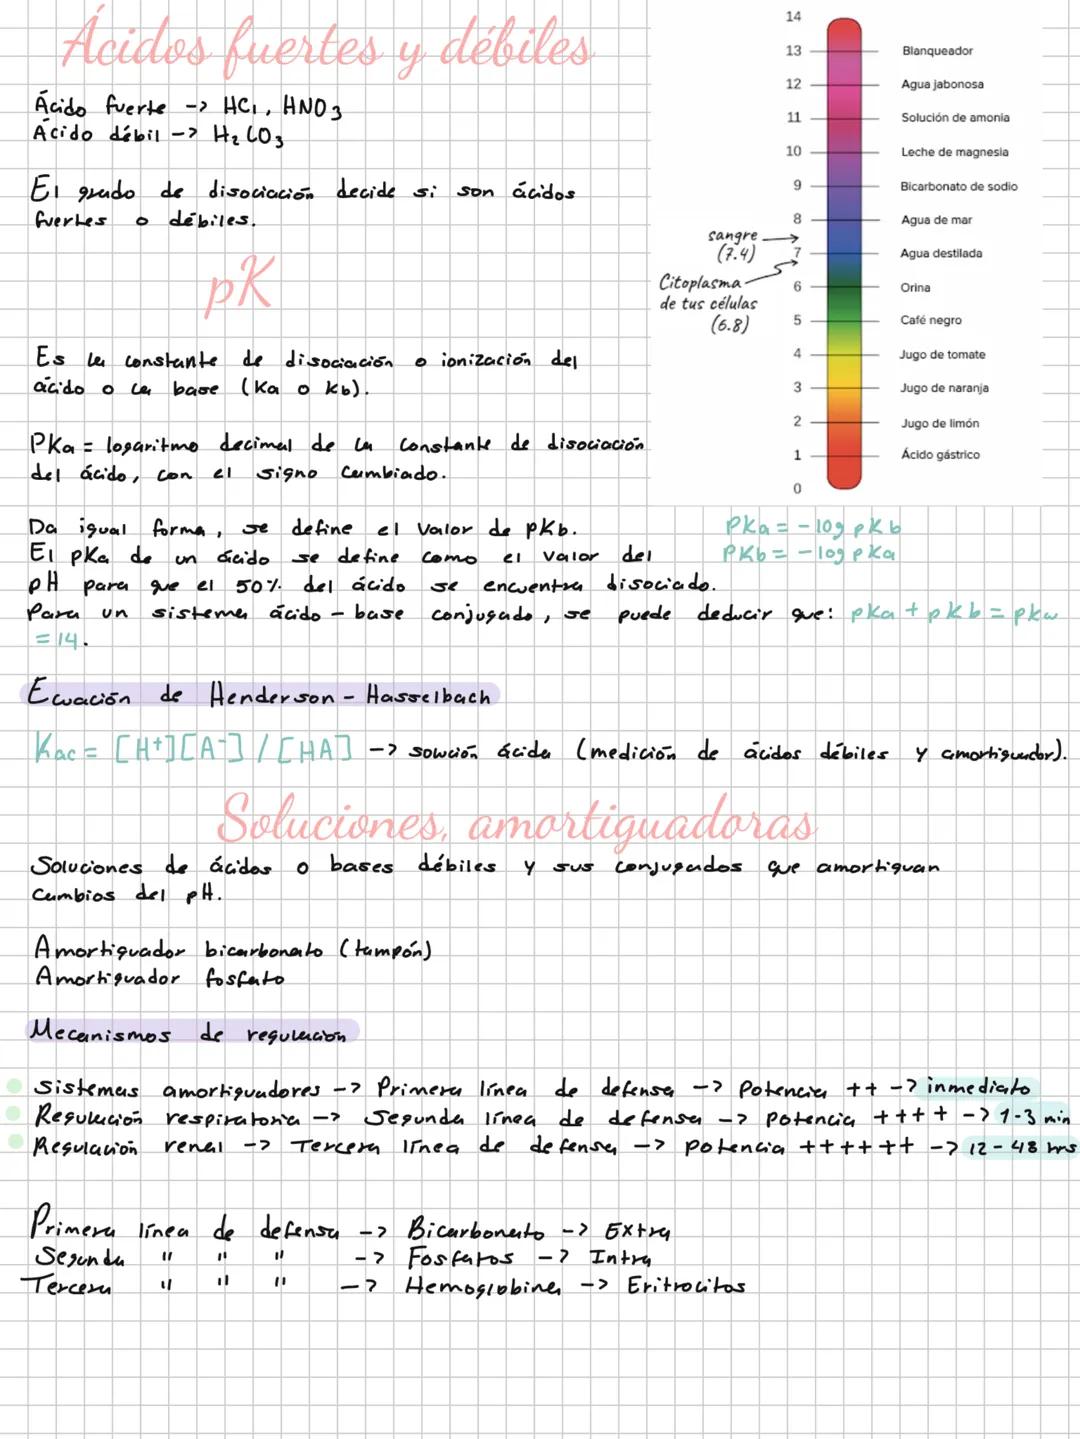 Ácidos fuertes y débiles
Ácido fuerte -> HCl, HNO3
Ácido débil -> H2CO3
El grado de disociación decide si son ácidos
fuertes o débiles.
14
13 Blanqueador
12 Agua jabonosa
11 Solución de amonia
10 Leche de magnesia
9 Bicarbonato de sodio
8 Agua de mar
sangre
(7.4)
7 Agua destilada
Citoplasma
de tus células
(6.8)
6 Orina
5 Café negro
4 Jugo de tomate
3 Jugo de naranja
2 Jugo de limón
1 Ácido gástrico
0
pK
Es la constante de disociación o ionización del
ácido o la base (Ka o Kb).
PKa = logaritmo decimal de la constante de disociación
del ácido, con el signo cambiado.
Da igual forma, se define el valor de pKb.
El pKa de un ácido se define como el valor del
pH para que el 50% del ácido se encuentra disociado.
Para un sistema ácido - base conjugado, se puede deducir que: pKa + pKb = pKw
= 14.
PKa = -log pKb
PKb = -log pKa
Ecuación de Henderson - Hasselbach
Kac = [H+][A-] / [HA] -> solución ácida (medición de ácidos débiles y amortiguador).
Soluciones, amortiguadoras
Soluciones de ácidos o bases débiles y sus conjugados que amortiguan
cambios del pH.
Amortiguador bicarbonato (tampón)
Amortiguador fosfato
Mecanismos de regulación
Sistemas amortiguadores -> Primera línea de defensa -> Potencia ++ -> inmediato
Regulación respiratoria -> Segunda línea de defensa -> Potencia ++++ -> 1-3 min
Regulación renal -> Tercera línea de defensa -> Potencia ++++++ -> 12-48 hrs
Primera línea de defensa -> Bicarbonato -> Extra
Segunda " " " -> Fosfatos -> Intra
Tercera " " " -> Hemoglobina -> Eritrocitos